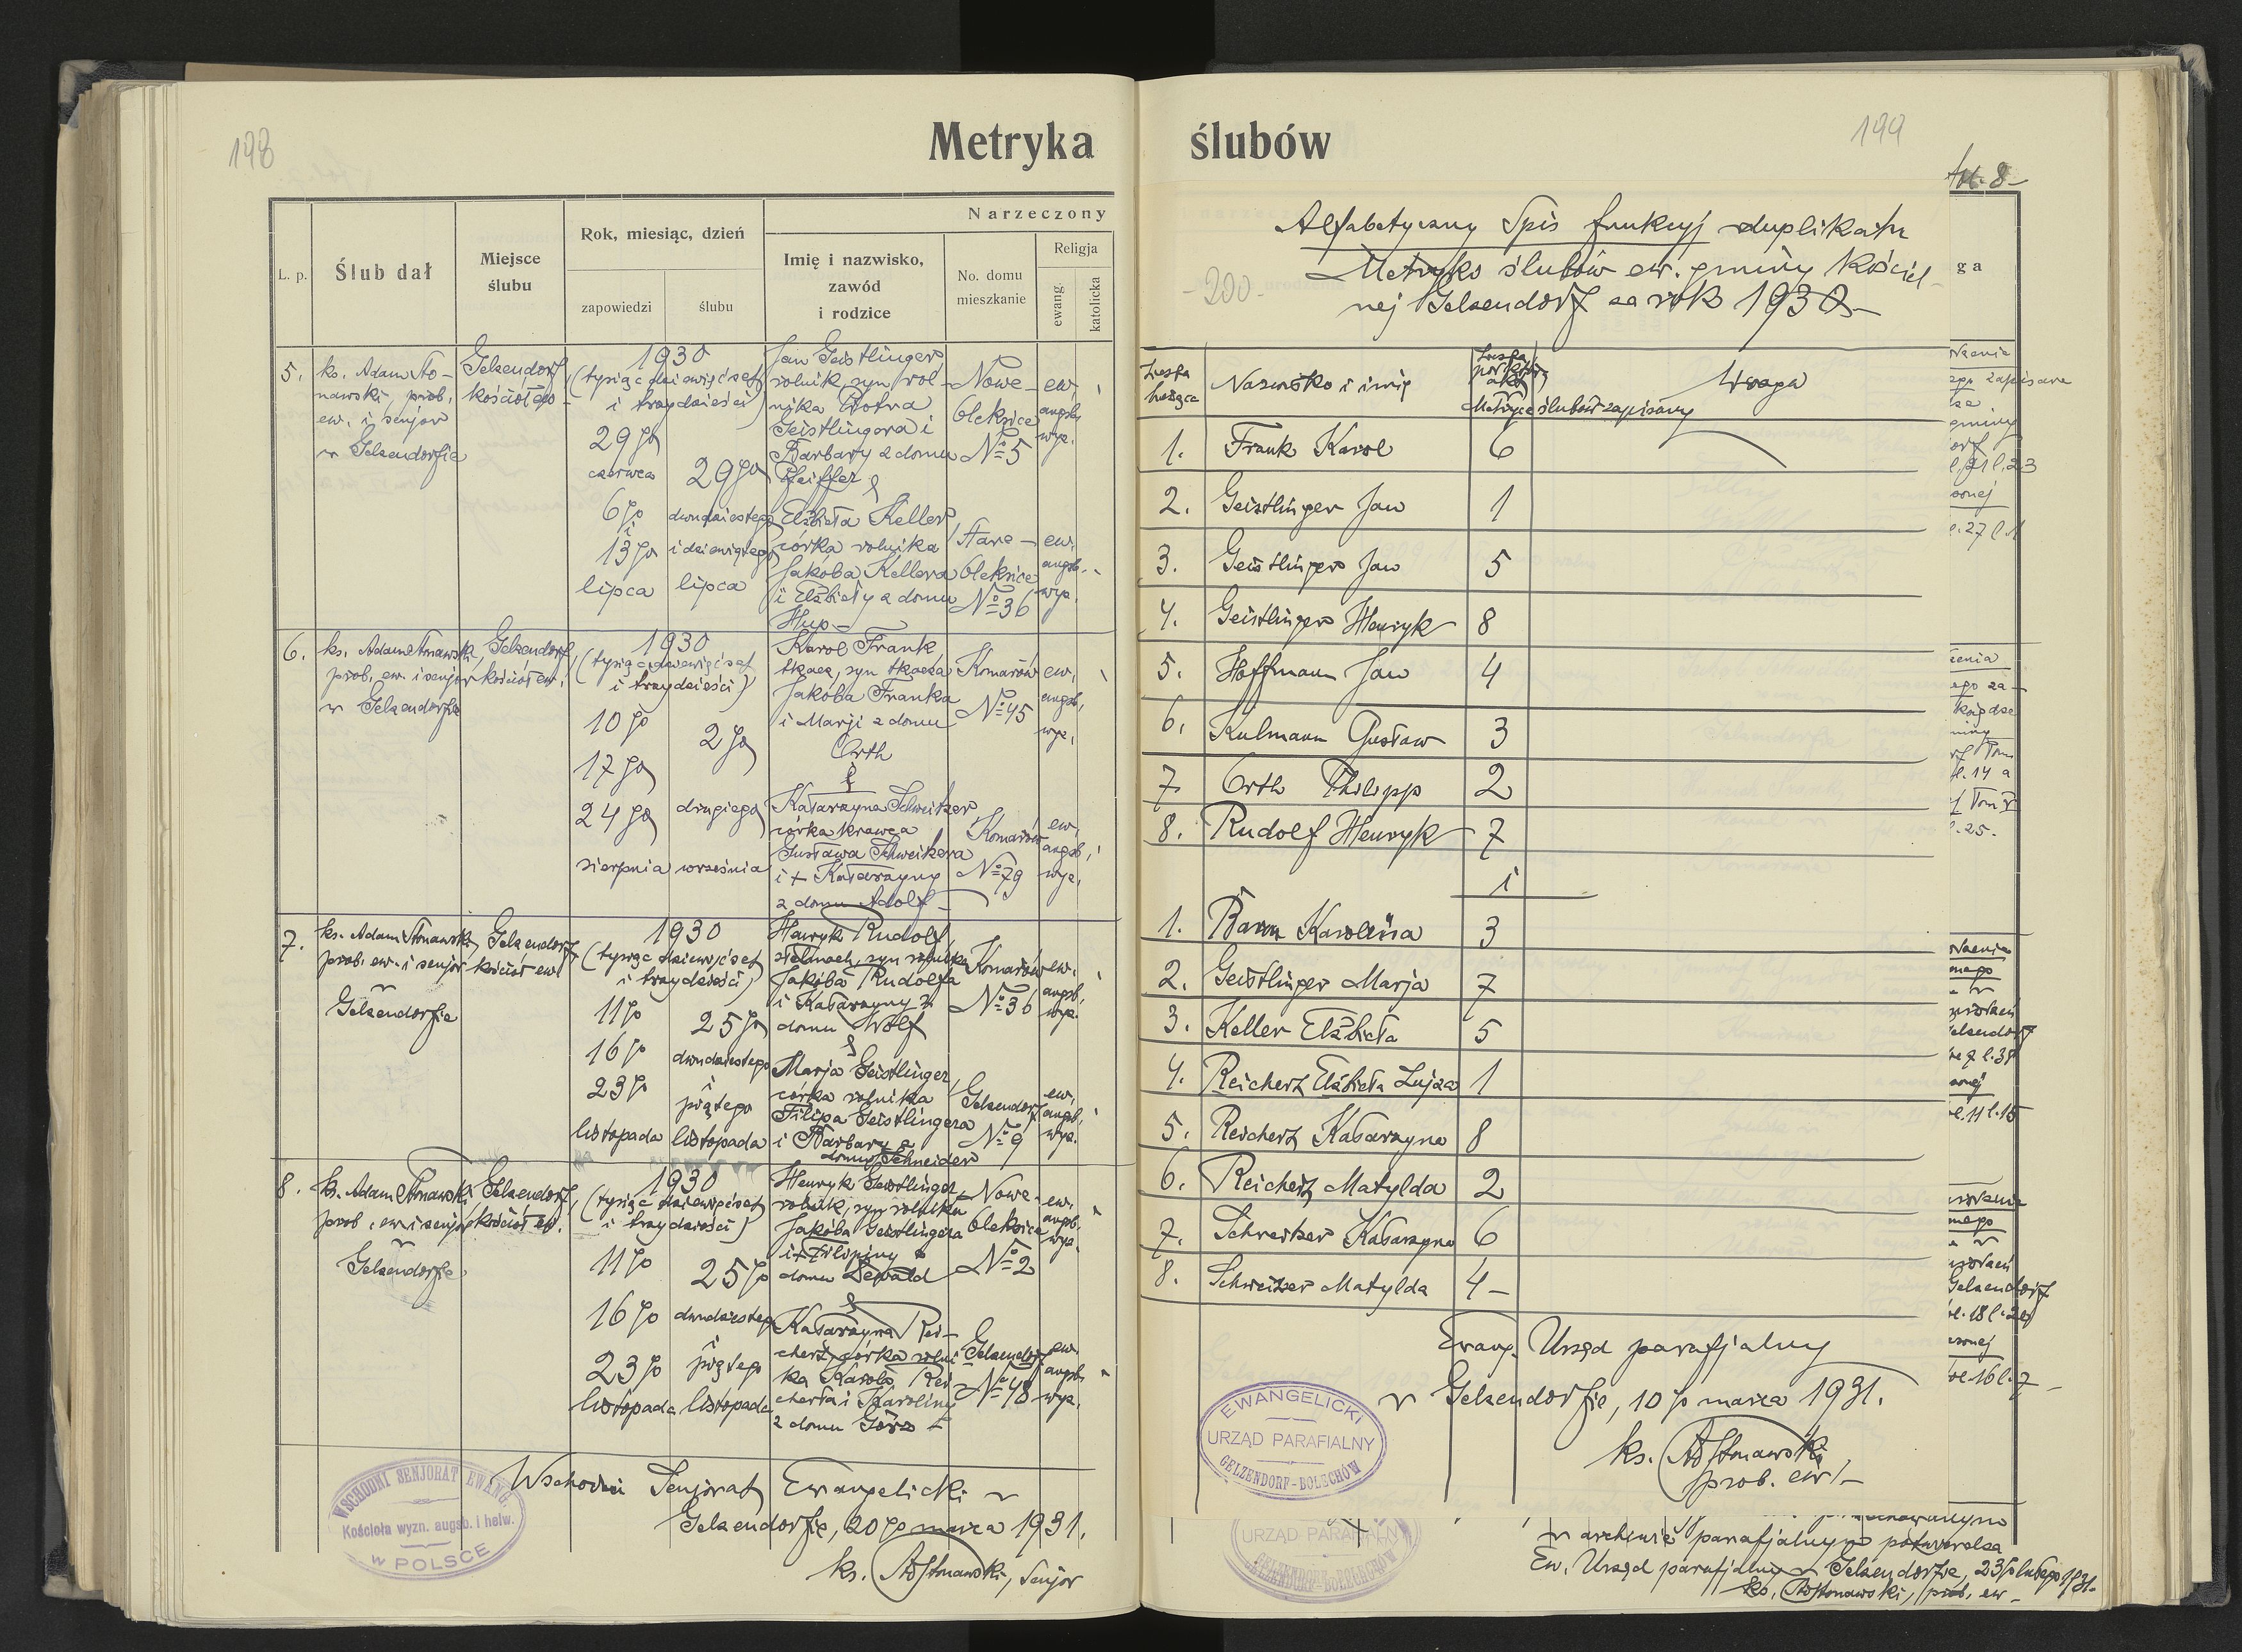 198
Metryka
L. p.
Ślub dał
Miejsce
ślubu
Rok, miesiąc, dzień
zapowiedzi
ślubu
Narzeczony
Imię i nazwisko,
zawód
i rodzice
No. domu
mieszkanie
Religja
ewang.
katolicka
5.
ks. Adam Sto-
nawski, prob.
ew. i senjor
w Gelsendorfie
Gelsendorf,
kościół ew.
1930
(tysiąc dziewięćset
i trzydzieści)
29go
czerwca
6go
i
13go
lipca
29go
dwudziestego
i dziewiątego
lipca
Jan Geistlinger,
rolnik, syn rol-
nika Piotra
Geistlingera i
Barbary z domu
Pfeiffer
&
Elżbieta Keller,
córka rolnika
Jakóba Kellera
i Elżbiety z domu
Hup-
Nowe-
Oleksice
No 5
Stare-
Oleksice
No 36
ew.
augsb.
wyz.
ew.
augsb.
wyz.
6.
ks. Adam Stonawski,
prob. ew. i senjor
w Gelsendorfie
Gelsendorf,
kościół ew.
1930
(tysiąc dziewięćset
i trzydzieści)
10go
17go
24go
sierpnia
2go
drugiego
września
Karol Frank,
tkacz, syn tkacza
Jakóba Franka
i Marji z domu
Orth
&
Katarzyna Schweitzer,
córka krawca
Gustawa Schweitzera
i + Katarzyny
z domu Adolf-
Komarów
No 45
Komarów
No 79
ew.
augsb.
wyz.
ew.
augsb.
wyz.
7.
ks. Adam Stonawski,
prob. ew. i senjor
w
Gelsendorfie
Gelsendorf,
kościół ew.
1930
(tysiąc dziewięćset
i trzydzieści)
11go
16go
23go
listopada
25go
dwudziestego
i
piątego
listopada
Henryk Rudolf,
stelmach, syn rolnika
Jakóba Rudolfa
i Katarzyny z
domu Wolf
&
Marja Geistlinger,
córka rolnika
Filipa Geistlingera
i Barbary z
domu Schneider
Komarów
No 36
Gelsendorf
No 9
ew.
augsb.
wyz.
ew.
augsb.
wyz.
8.
ks. Adam Stonawski,
prob. ew. i senjor
w
Gelsendorfie
Gelsendorf,
kościół ew.
1930
(tysiąc dziewięćset
i trzydzieści)
11go
16go
23go
listopada
25go
dwudziestego
i
piątego
listopada
Henryk Geistlinger,
rolnik, syn rolnika
Jakóba Geistlingera
i + Filipiny z
domu Dewald
&
Katarzyna Rei-
chert, córka rolni-
ka Karola Rei-
cherta i Karoliny
z domu Görz
Nowe-
Oleksice
No 2
Gelsendorf
No 48
ew.
augsb.
wyz.
ew.
augsb.
wyz.
WSCHODNI SENJORAT EWANG.
Kościoła wyzn. augsb. i helw.
W POLSCE
Wschodni Senjorat Ewangelicki w
Gelsendorfie, 20go marca 1931.
ks. AdStonawski, senjor
ślubów
199
fol. 8-
ga
Alfabetyczny Spis funkcyj duplikatu
Metryki ślubów ew. gminy Kościel-
nej Gelsendorf za rok 1930-
-200-
Liczba
bieżąca
Nazwisko i imię
Liczba
pod którą
akt
w Metryce ślubów zapisany
Uwaga
1. Frank Karol 6
2. Geistlinger Jan 1
3. Geistlinger Jan 5
4. Geistlinger Henryk 8
5. Hoffmann Jan 4
6. Kulmann Gustaw 3
7. Orth Philipp 2
8. Rudolf Henryk 7
i
1. Baum Karolina 3
2. Geistlinger Marja 7
3. Keller Elżbieta 5
4. Reichert Elżbieta Luiza 1
5. Reichert Katarzyna 8
6. Reichert Matylda 2
7. Schweitzer Katarzyna 6
8. Schweitzer Matylda 4-
Ewang. Urząd parafjalny
w Gelsendorfie, 10go marca 1931.
ks. AdStonawski
prob. ew.
EWANGELICKI
URZĄD PARAFIALNY
GELZENDORF-BOLECHÓW
URZĄD PARAFIALNY
GELZENDORF-BOLECHÓW
w archiwie parafjalnym potwierdza
Ew. Urząd parafjalny w Gelsendorfie, 23go lutego 1931.
ks. AdStonawski, prob. ew-